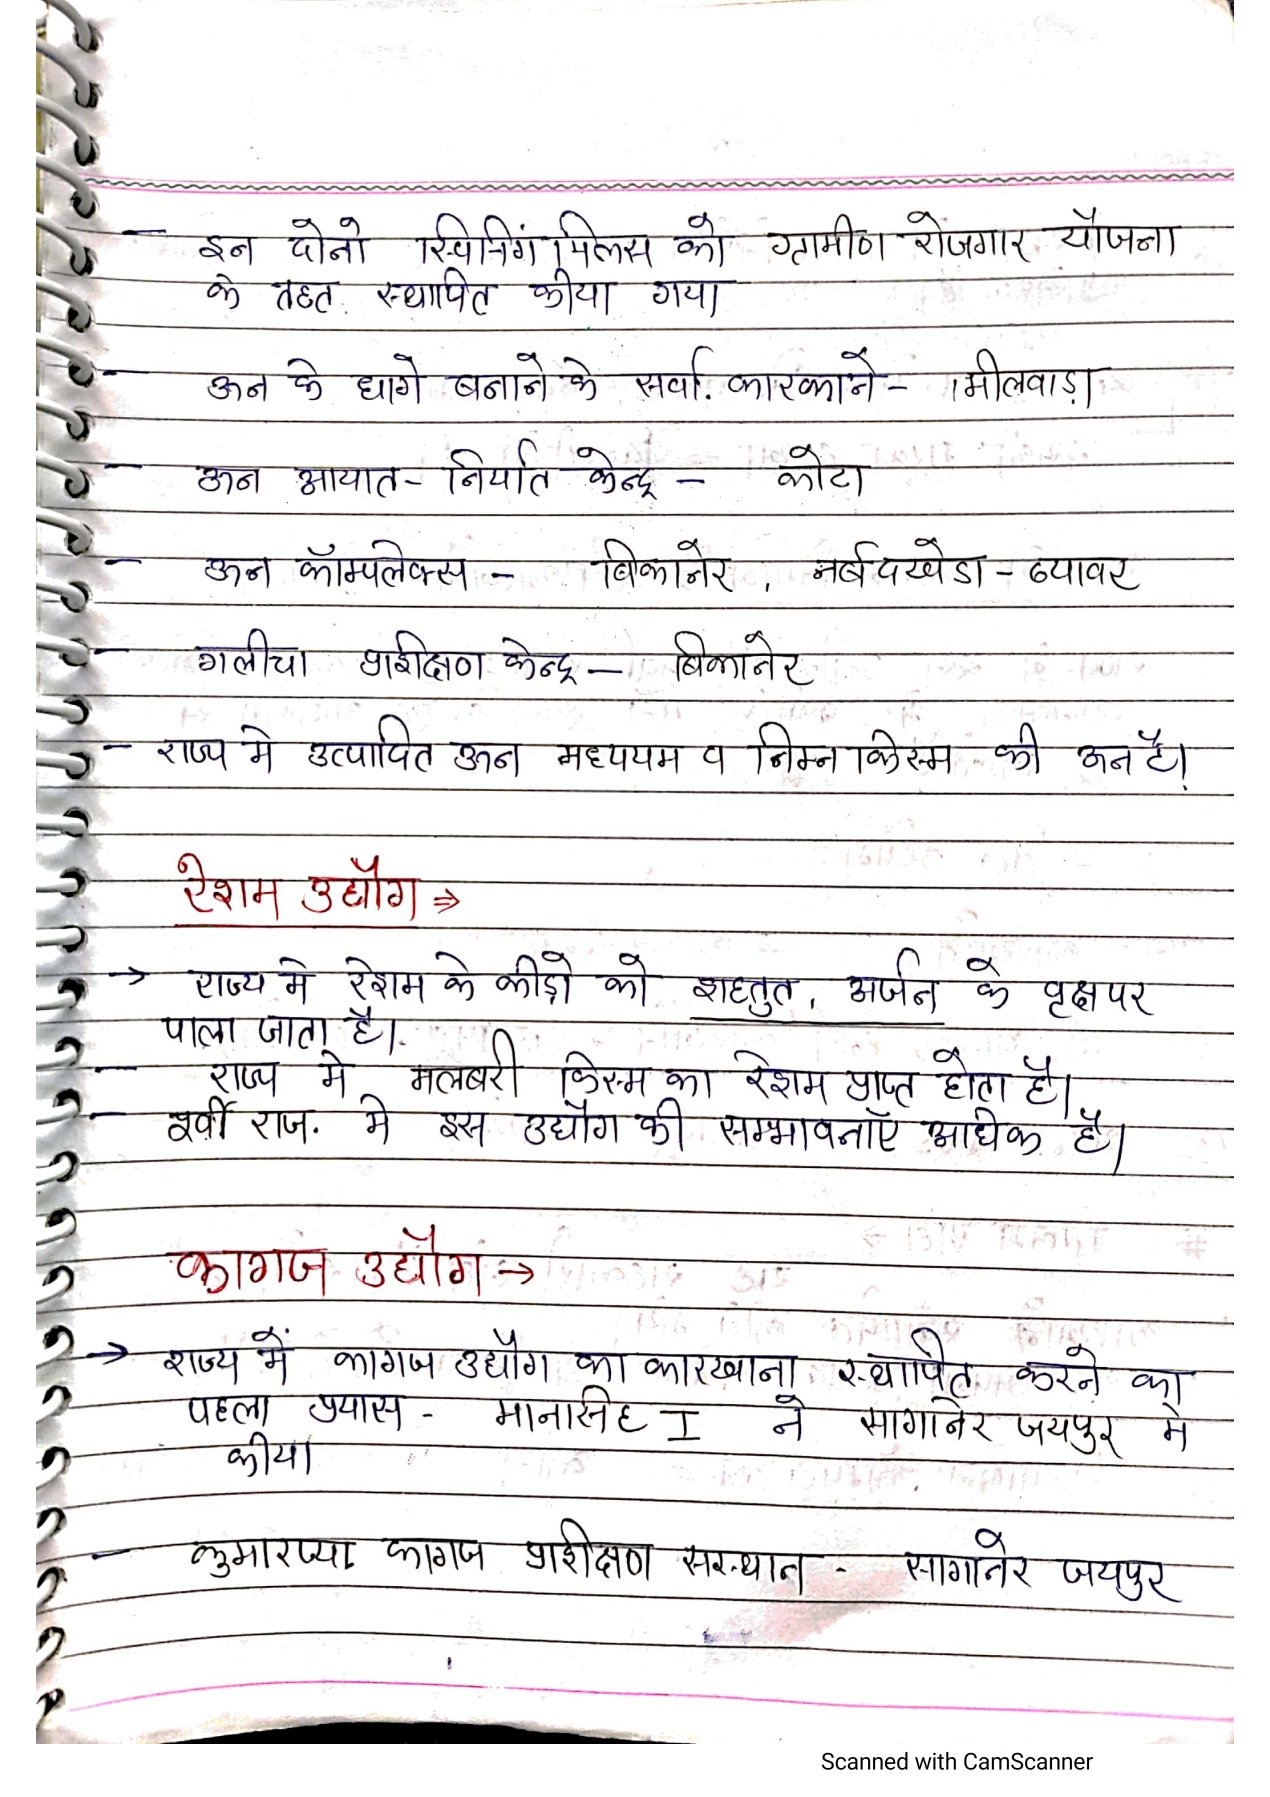 - इन दोनो स्पिनिंग मिलस को ग्रामीण रोजगार यौजना
के तहत स्थापित कीया गया
- ऊन के धागे बनाने के सर्वा. कारकाने - भीलवाड़ा
- ऊन आयात - निर्यात केन्द्र - कोटा
- ऊन कॉम्पलेक्स - बिकानेर, नर्बदखेडा - ब्यावर
- गलीचा प्रशिक्षण केन्द्र - बिकानेर
- राज्य मे उत्पादित ऊन मध्ययम व निम्न किस्म की ऊन है।
रेशम उद्यौग ⇒
→ राज्य मे रेशम के कीड़ो को शहतुत, अर्जन के वृक्ष पर
पाला जाता है।
- राज्य मे मलबरी किस्म का रेशम प्राप्त होता है।
- राज. मे इस उद्यौग की सम्भावनाएँ अधिक है।
कागज उद्यौग →
→ राज्य में कागज उद्यौग का कारखाना स्थापित करने का
पहला प्रयास - मानसिंह I ने सागानेर जयपुर मे
कीया
- कुमारप्पा कागज प्रशिक्षण संस्थान - सागानेर जयपुर
Scanned with CamScanner